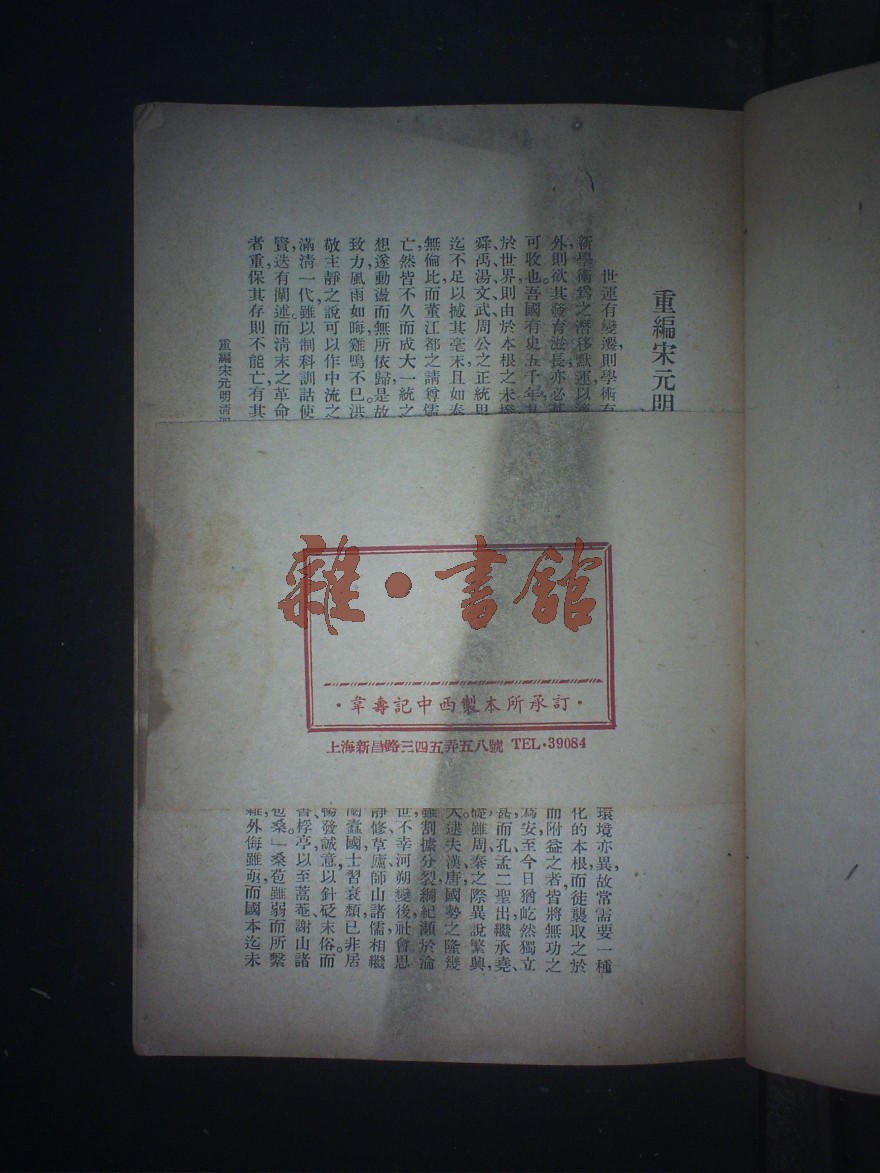 重編宋元明
世運有變遷,則學術有
新學術爲之潛移默運以
外則欲其發育滋長,亦必其
可收也。吾國有史五千年,
於世界,則由於本根之未
舜、禹、湯、文、武、周公之正統思
迄不足以撼其毫末。且如秦
無倫比,而董江都之請尊儒
亡,然皆不久而成大一統之
想遂動盪而無所依歸。是故
致力,風雨如晦,雞鳴不已。洪
敬主靜之說,可以作中流之
滿清一代,雖以制科訓詁使
賢,迭有闡述。而清末之革命
者重,保其存則不能亡,有其
重編宋元明清
雜·書館
·韋壽記中西製本所承訂·
上海新昌路三四五弄五八號 TEL·39084
環境亦異,故常需要一種
化的本根,而徒襲取之於
而附益之者,皆將無功之
爲安,至今日猶屹然獨立
甚而孔、孟二聖出,繼承堯、
礎,雖周、秦之際,異說繁興,
大,逮夫漢、唐,國勢之隆,幾
雖割據分裂,綱紀瀕於淪
世,不幸河朔變後,社會思
靜修、草廬、師山諸儒,相繼
閹蠹國,士習衰頹,已非居
暢發誠意,以針砭末俗。而
書、桴亭,以至蒿菴、謝山諸
苞桑。」桑苞雖弱,而所繫
雖外侮雖亟,而國本迄未